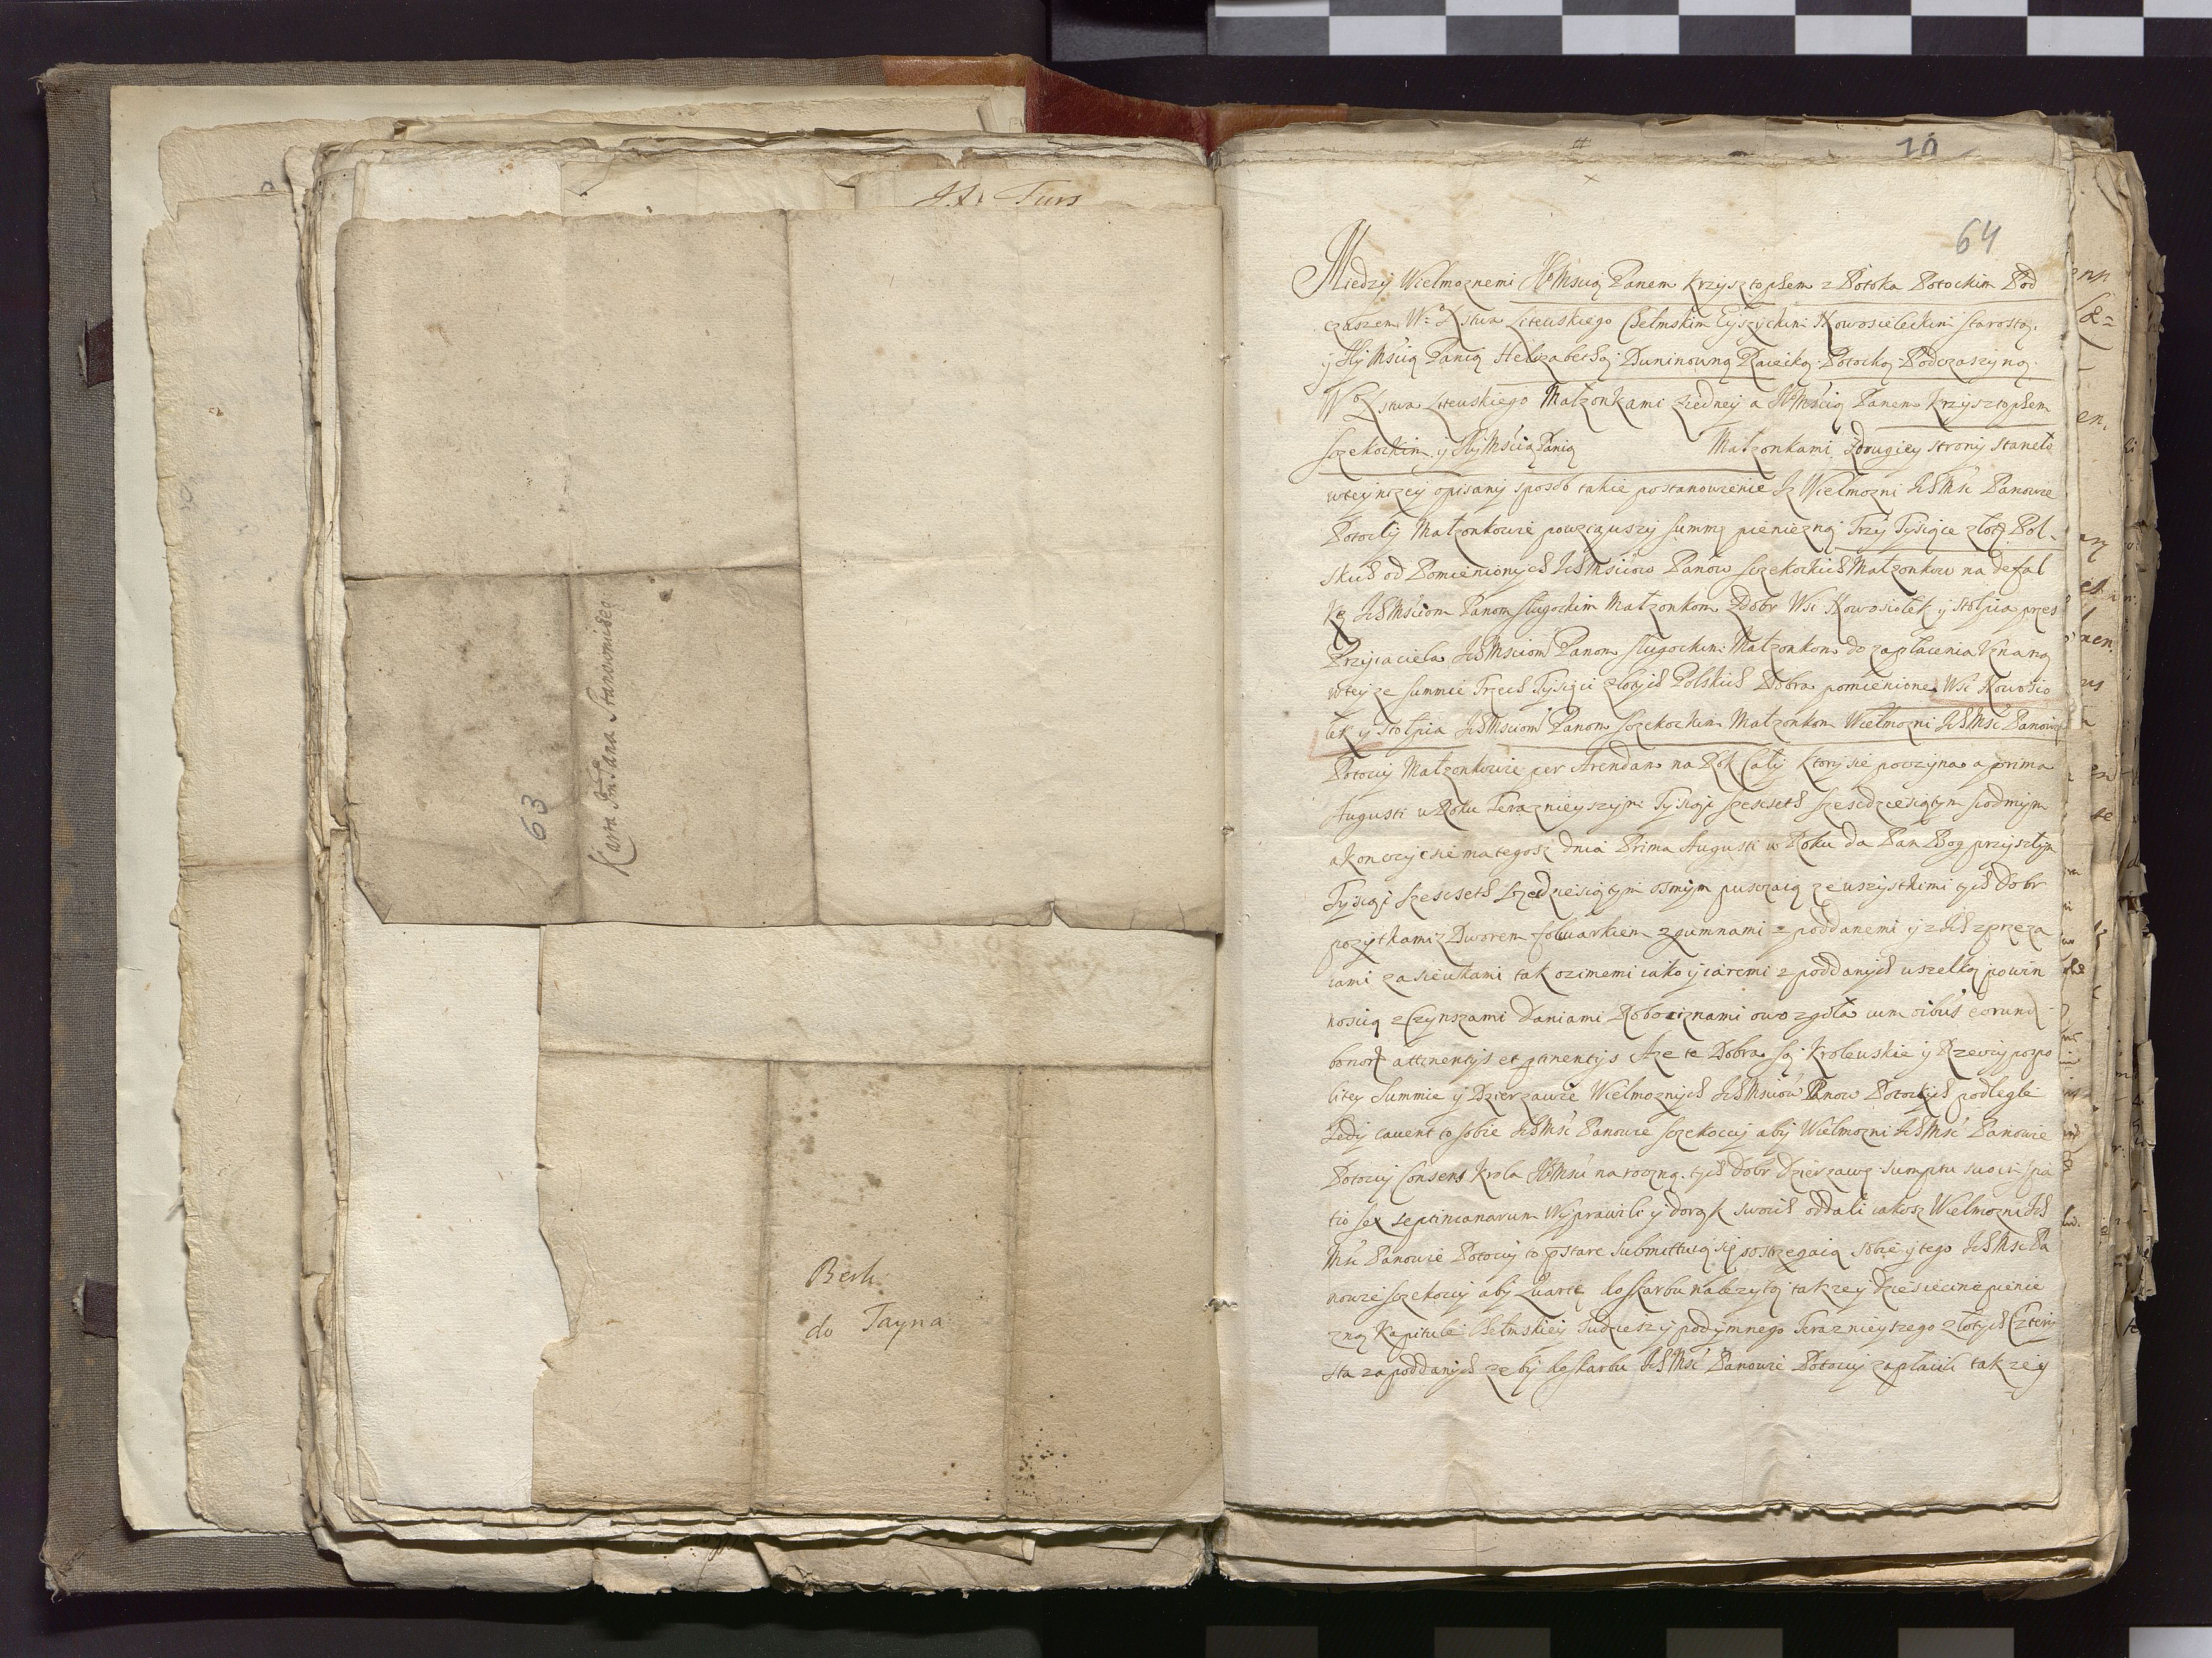 J. X. Furs
63
Karta JmPana Stanowiskieg
Berli
do Tayna
10
64
Miedzy Wielmoznemi JeoMscią Panem Krzysztophem z Potoka Potockim Pod
czaszem W° X stwa Litewskiego Chełmskim Eyszyckim Nowosieleckim starostą.
y JeyMścią Panią Helizabethą Duninowną Raiecką Potocką Podczaszyną
W° X stwa Litewskiego Małzonkami ziedney a JeoMścią Panem Krzysztophem
sczekockim y JeyMścią Panią Małzonkami zdrugiey strony staneło
wtey nizey opisany sposob takie postanowienie Jz Wielmozni IchMść Panowie
Potoccy Małzonkowie powziąwszy summę pieniezną Trzy Tysiące złotych Pol
skich od Pomienionych IchMściow Panow sczekockich Małzonkow na defal
kę IchMściom Panom sługockim Małzonkom z dobr Wsi Nowosiołek y Stołpia przes
Przyiaciela IchMściom Panom sługockim Małzonkom do zapłacenia Vznaną
wtey ze summie Trzech Tysięcy złotych Polskich Dobra pomienione Wsi Nowosio
łek y Stołpia IchMściom Panom sczekockim Małzonkom Wielmozni IchMść Panowie
Potoccy Małzonkowie per Arendam na Rok Cały Ktory sie poczyna a prima
Augusti w Roku Teraznieyszym Tysiąc szescseth szescdziesiątym siodmym
a konczyc sie ma tegosz dnia Prima Augusti w Roku da Pan Bog przyszłym
Tysiąc szescseth szescdziesiątym osmym pusczaią ze wszystkimi tych Dobr
pozytkami z Dworem folwarkiem z gumnami z poddanemi y z Ich zprzeza
iami zasiewkami tak ozimemi iako y iaremi z poddanych wszelką powin
noscią z Czynszami Daniami Robociznami owo zgoła cum oibus eorund
bonor attinentys et ptinentys Aze te Dobra są Krolewskie y Rzeczypospo
litey Summie y Dzierzawie Wielmoznych IchMściow Panow Potockych podległe
Tedy cavent to sobie IchMść Panowie sczekoccy aby Wielmozni IchMść Panowie
Potoccy Consens Krola JeoMsci na roczną tych dobr dzierzawę sumptu suo in spa
tio sex septimanarum Wyprawili y do rąk swoich oddali iakosz Wielmozni Ich
Mść Panowie Potoccy to pstare submittuią się postrzegaią sobie y tego IchMsc Pa
nowie sczekoccy aby kwartę do skarbu nalezytą takzey dziesiecinę pienie
zną Kapitule Chełmskiey Tudzieszy podymnego Teraznieyszego złotych Cztery
sta za poddanych ze by do skarbu IchMść Panowie Potoccy zapłacili takzey